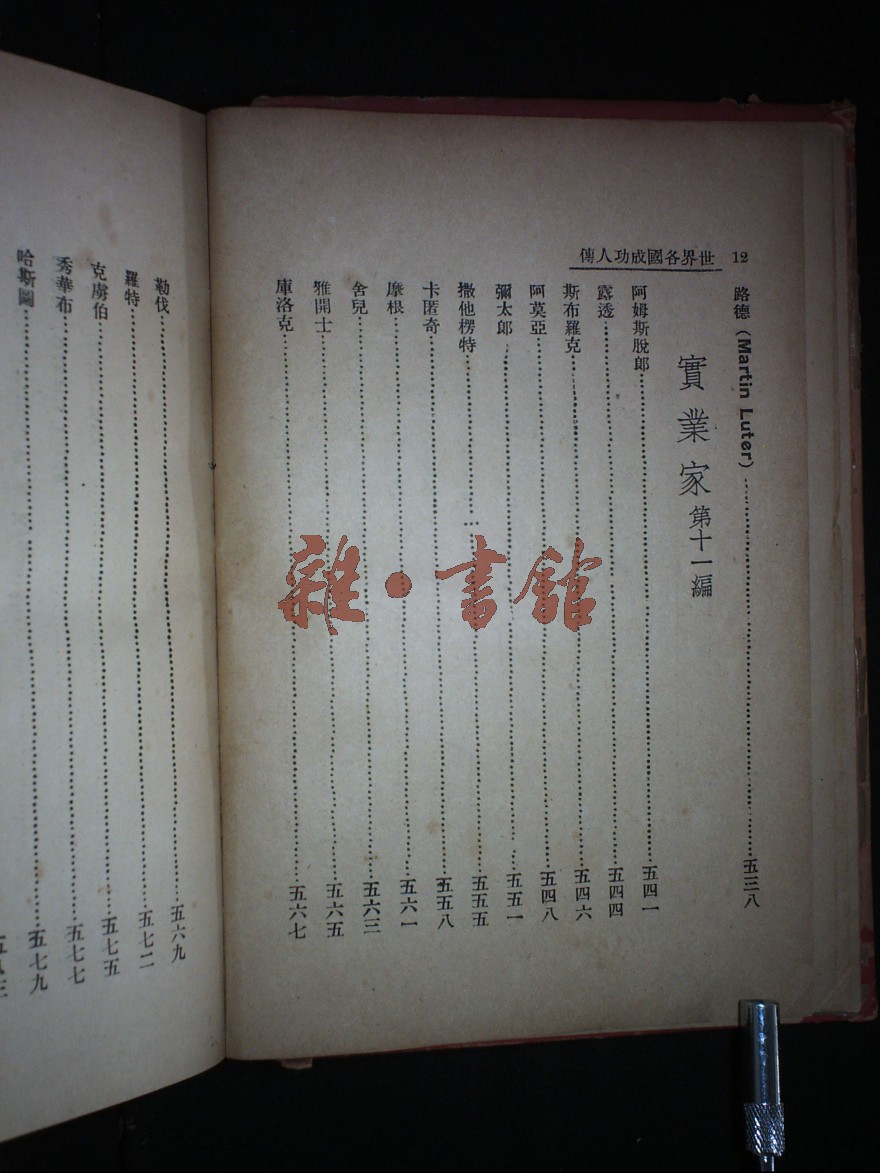 12 世界各國成功人傳
路德 (Martin Luter)……五三八
實業家 第十一編
阿姆斯脫郎……五四一
露透……五四四
斯布羅克……五四六
阿莫亞……五四八
彌太郎……五五一
撒他楞特……五五五
卡匿奇……五五八
摩根……五六一
舍兒……五六三
雅開士……五六五
庫洛克……五六七
勒伐……五六九
羅特……五七二
克虜伯……五七五
秀華布……五七七
哈斯圖……五七九
雜·書館